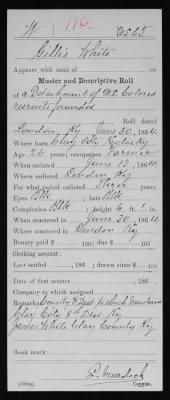 W 116 U S C T
Gillis White
Appears with rank of
Muster and Descriptive Roll
of a Detachment of U.S. Colored
recruits forwarded
Roll dated
London, Ky June 30, 1864
Where born Clay City Kentucky
Age 26 years; occupation Farmer
When enlisted June 13, 1864
Where enlisted London Ky
For what period enlisted Three years.
Eyes Blk ; hair Blk
Complexion Blk ; height 6 ft. 1 in.
When mustered in June 30, 1864
Where mustered in London Ky
Bounty paid $ 100; due $ 100
Clothing account:
Last settled , 186 ; drawn since $ 100
Date of first muster , 186 .
Company to which assigned
Remarks: County & Dist to which Mustered
Clay City 8th Dist Ky
James White Clay County Ky
Book mark:
Murdock
Copyist.